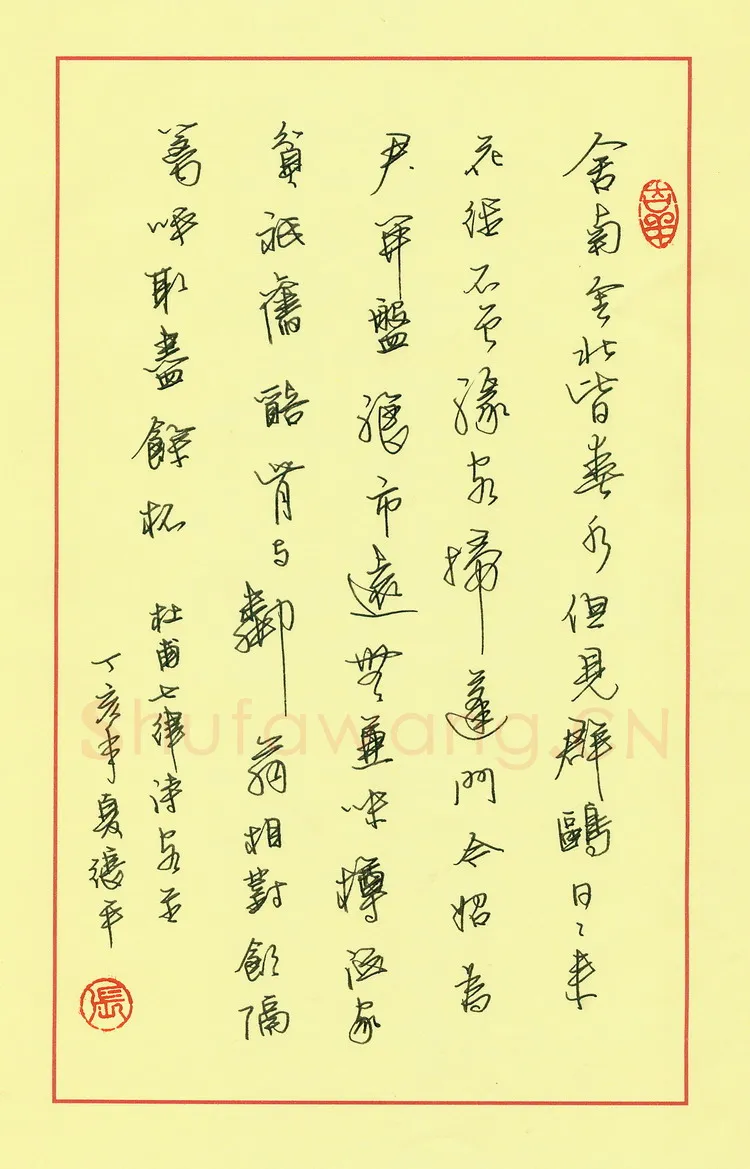 舍南舍北皆春水但見群鷗日々来
花徑不曾緣客掃蓬門今始為
君開盤飧市遠無兼味樽酒家
貧祇舊醅肯与鄰翁相對飲隔
篱呼取盡餘杯
杜甫七律诗客至
丁亥年夏張平
張
Shufawang.CN